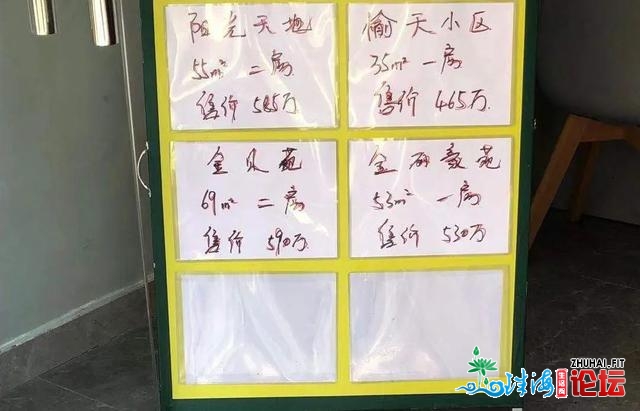 阳光天地
55m² 二房
售价 585万
愉天小区
35m² 一房
售价 465万
金贝苑
69m² 二房
售价 590万
金丽豪苑
53m² 一房
售价 530万
珠海
生活版
论坛
ZHUHAI.FIT